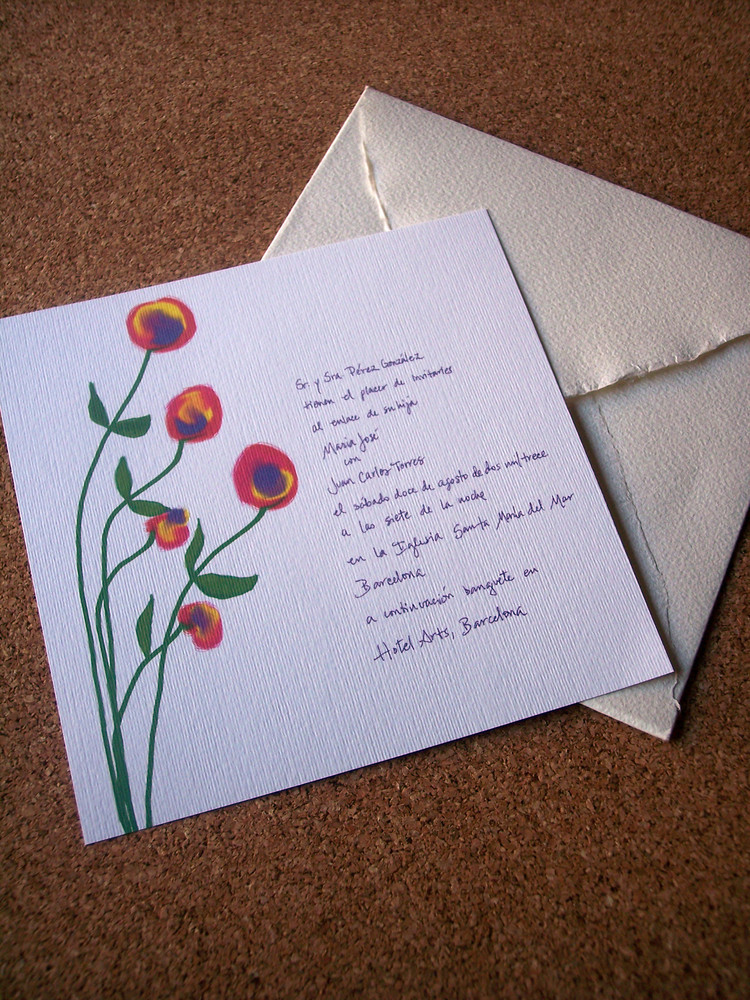 Sr. y Sra Pérez González
tienen el placer de invitarles
al enlace de su hija
Maria José
con
Juan Carlos Torres
el sábado doce de agosto de dos mil trece
a las siete de la noche
en la Iglesia Santa Maria del Mar
Barcelona
a continuación banquete en
Hotel Arts, Barcelona